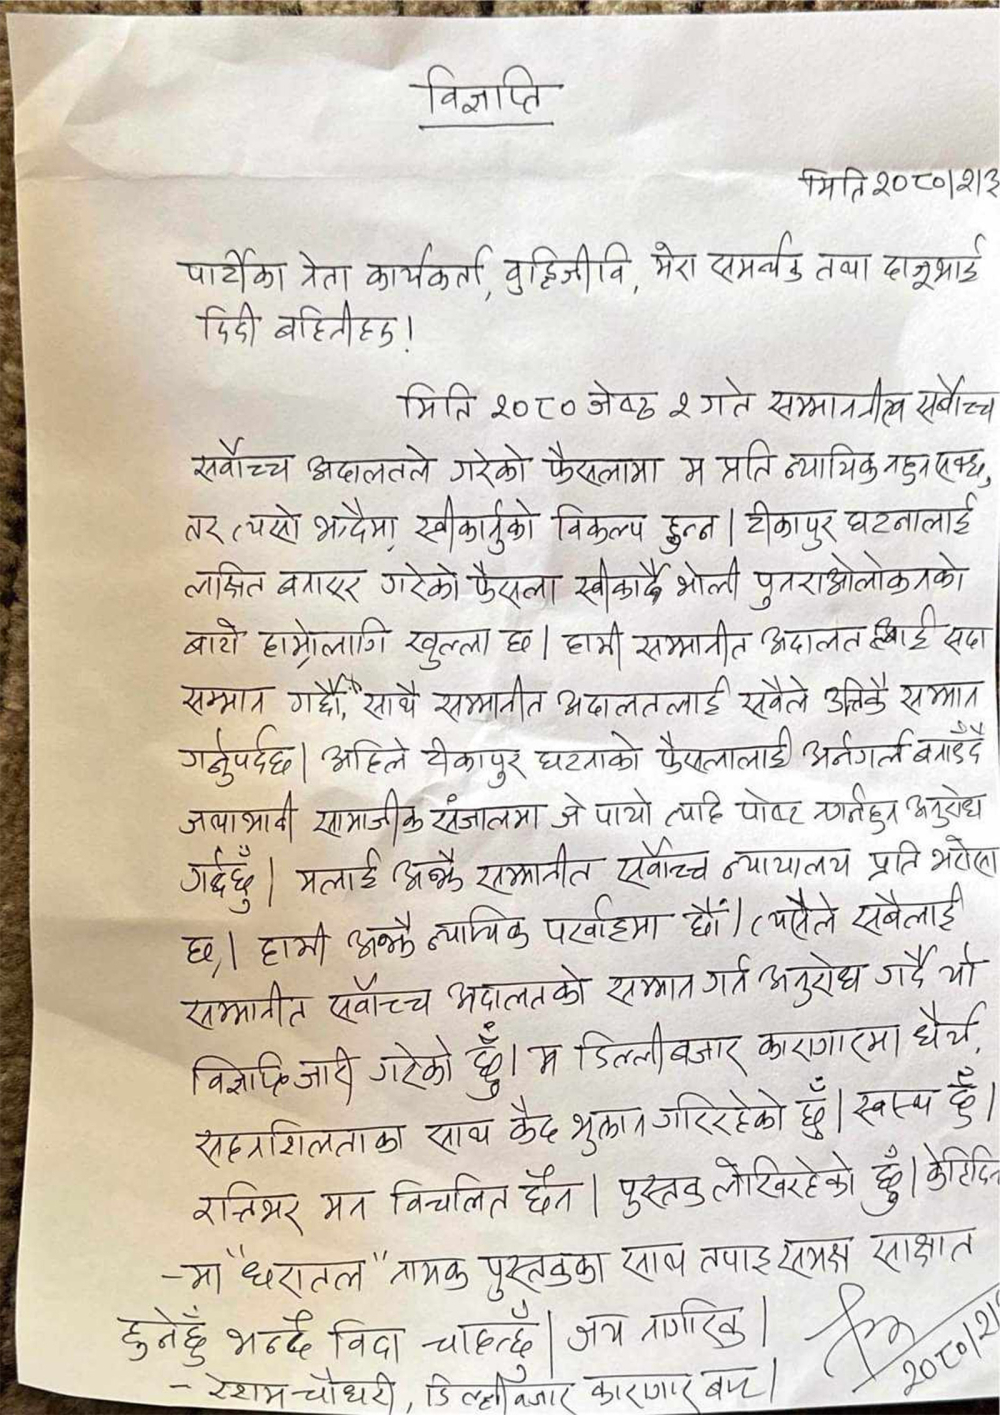 विज्ञाप्ति
मिति २०८०।२।३
पार्टीका नेता कार्यकर्ता, वुद्धिजीवि, मेरा समर्थक तथा दाजूभाई
दिदी बहिनीहरु!
मिति २०८० जेष्ठ २ गते सम्माननीय सर्वोच्च
सर्वोच्च अदालतले गरेको फैसलामा म प्रति न्यायिक नहुनसक्छ,
तर त्यसो भन्दैमा स्वीकार्नुको विकल्प हुन्न। टीकापुर घटनालाई
लाक्षित बनाएर गरेको फैसला स्वीकार्दै भोली पुनराओलोकनको
बाटो हाम्रोलागि खुल्ला छ। हामी सम्मानीत अदालत लाई सदा
सम्मान गर्छौं, साथै सम्मानीत अदालतलाई सवैले उत्तिकै सम्मान
गर्नुपर्दछ। अहिले टीकापुर घटनाको फैसलालाई अर्नगर्ल बनाउँदै
जथाभावी सामाजीक संजालमा जे पायो त्यहि पोष्ट नगर्नहुन अनुरोध
गर्दछुँ। मलाई अझै सम्मानीत सर्वोच्च न्यायालय प्रति भरोसा
छ,। हामी अझै न्यायिक पर्खाइमा छौं। त्यसैले सबैलाई
सम्मानीत सर्वोच्च अदालतको सम्मान गर्न अनुरोध गर्दै यो
विज्ञाप्ति जारी गरेको छुँ। म डिल्लीबजार कारागारमा धैर्य,
सहनशिलताका साथ कैद भुक्तान गरिरहेको छुँ। स्वस्थ छुँ।
रत्तिभर मन विचलित छैन। पुस्तक लेखिरहेको छुँ। केहिदिन
-मा "धरातल" नामक पुस्तकका साथ तपाइ समक्ष साक्षात
हुनेछुँ भन्दै विदा चाहन्छुँ। जय नागरिक।
- रेशम चौधरी, डिल्लीबजार कारागार बाट।
२०८०।२।